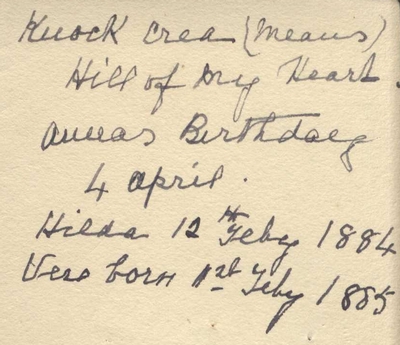 Knock Crea (Means)
Hill of My Heart.
Annas Birthday
4 April.
Hilda 12th Feby 1884
born 1st Feby 1885